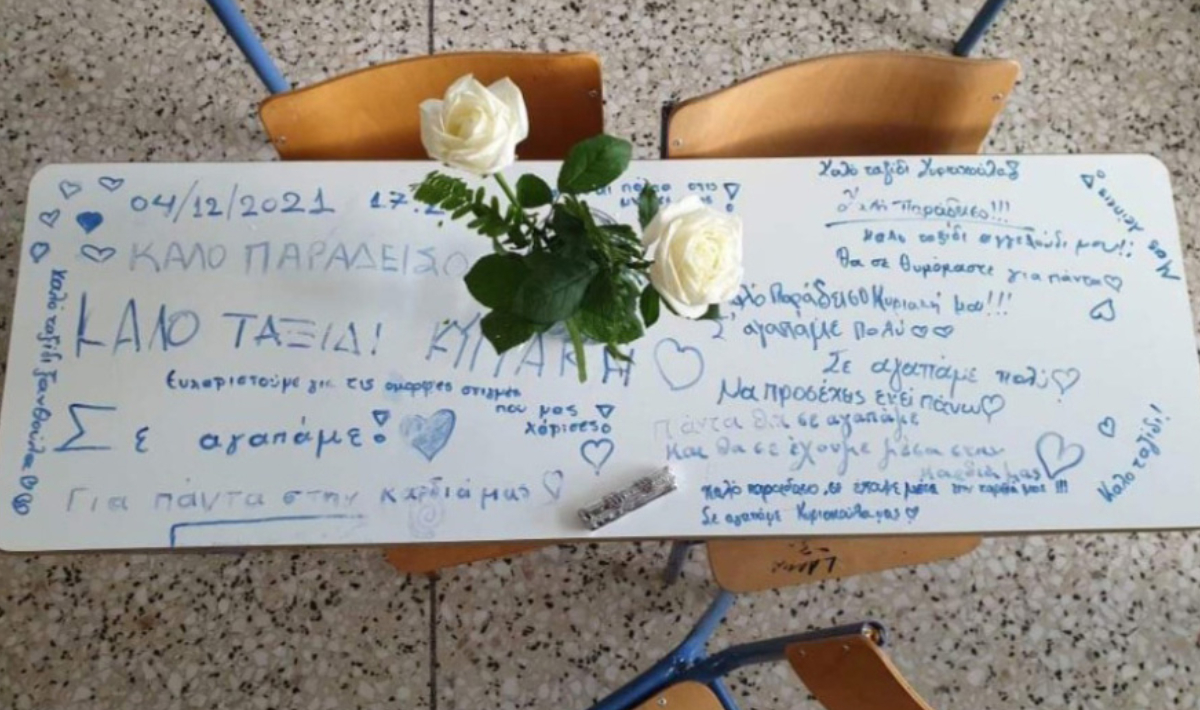 04/12/2021 17.2
ΚΑΛΟ ΠΑΡΑΔΕΙΣΟ
ΚΑΛΟ ΤΑΞΙΔΙ! ΚΥΡΙΑΚΗ
Ευχαριστούμε για τις όμορφες στιγμές
που μας
χάρισες
Σε αγαπάμε!
Για πάντα στην καρδιά μας
Καλό ταξίδι ξανθούλα
στις
Καλό ταξίδι Κυριακούλα
Παράδεισο!!!
Καλό ταξίδι αγγελούδι μου!!
Θα σε θυμόμαστε για πάντα
Μας λείπεις
Παράδεισο Κυριακή μου!!!
Σ' αγαπάμε πολύ
Σε αγαπάμε πολύ
Να προσέχεις εκεί πάνω
Πάντα θα σε αγαπάμε
και θα σε έχουμε μέσα στην
καρδιά μας
Καλό ταξίδι!
Καλό παράδεισο, σε έχουμε μέσα την καρδιά μας !!!
Σε αγαπάμε Κυριακούλα μας